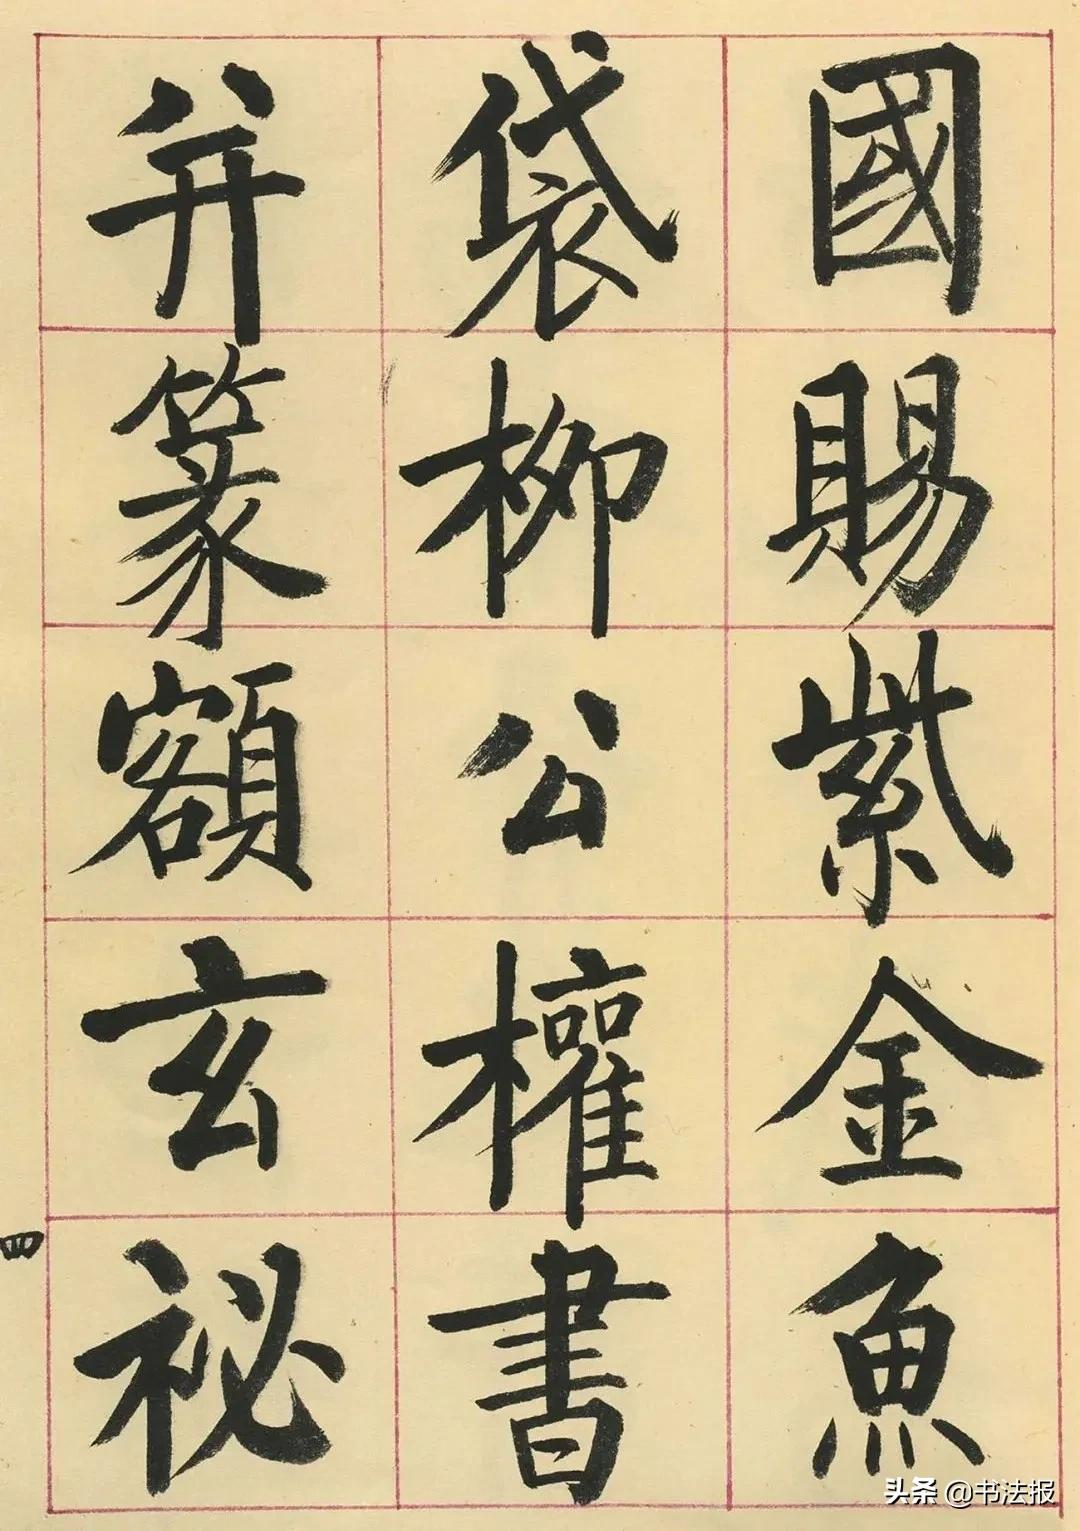 國賜紫金魚
袋柳公權書
并篆額玄
祕
四
头条 @书法报